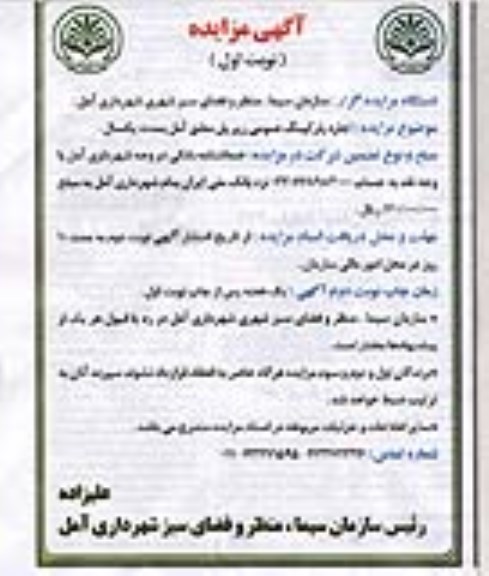 آگهی مزایده
(نوبت اول)
دستگاه مزایده گزار: سازمان سیما، منظر و فضای سبز شهری شهرداری آمل.
موضوع مزایده: اجاره پارکینگ عمومی زیر پل معلق آمل بمدت یکسال
مبلغ و نوع تضمین شرکت در مزایده: ضمانتنامه بانکی در وجه شهرداری آمل یا
وجه نقد به حساب نزد بانک ملی ایران بنام شهرداری آمل به مبلغ
ریال.
مهلت و محل دریافت اسناد مزایده: از تاریخ انتشار آگهی نوبت دوم به مدت ۱۰
روز در محل امور مالی سازمان.
زمان چاپ نوبت دوم آگهی: یک هفته پس از چاپ نوبت اول.
* سازمان سیما، منظر و فضای سبز شهری شهرداری آمل در رد یا قبول هر یک از
پیشنهادها مختار است.
*برندگان اول و دوم و سوم مزایده هرگاه حاضر به انعقاد قرارداد نشوند سپرده آنان به
ترتیب ضبط خواهد شد.
*سایر اطلاعات و جزئیات مربوطه در اسناد مزایده مندرج می باشد.
شماره تماس:
علیزاده
رئیس سازمان سیما، منظر و فضای سبز شهرداری آمل